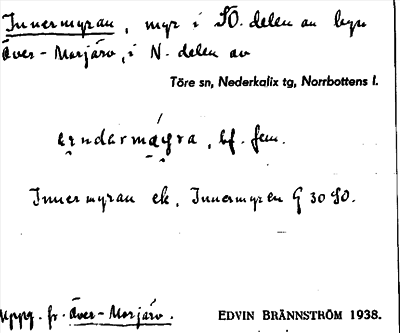 Innermyran, myr i SO. delen av byn
Över-Morjärv, i N. delen av
Töre sn, Nederkalix tg, Norrbottens l.
bf. fem.
Innermyran ek. Innermyren G 30 SO.
Uppg. fr. Över-Morjärv.
EDVIN BRÄNNSTRÖM 1938.